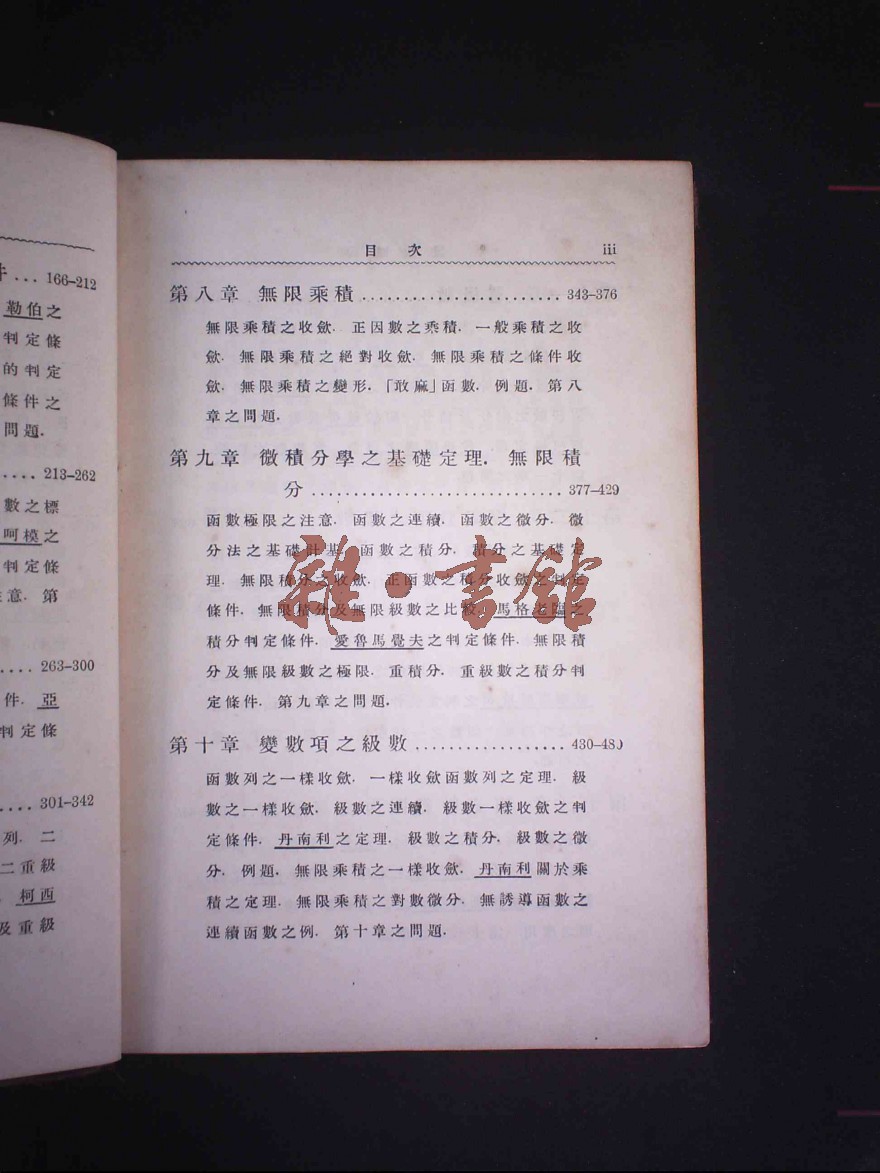 件 ... 166–212
勒伯之
判定條
的判定
條件之
問題.
.... 213–262
數之標
呵模之
判定條
注意. 第
.... 263–300
件. 亞
判定條
.... 301–342
列. 二
二重級
柯西
及重級
目 次 iii
第八章 無限乘積 ........................ 343–376
無限乘積之收歛. 正因數之乘積. 一般乘積之收
歛. 無限乘積之絕對收歛. 無限乘積之條件收
歛. 無限乘積之變形.「敢麻」函數. 例題. 第八
章之問題.
第九章 微積分學之基礎定理. 無限積
分 .............................. 377–429
函數極限之注意. 函數之連續. 函數之微分. 微
分法之基礎 函數之積分. 積分之基礎定
理. 無限積分之收歛. 正函數之積分收歛之判定
條件. 無限積分及無限級數之比較. 馬格老臨之
積分判定條件. 愛魯馬覺夫之判定條件. 無限積
分及無限級數之極限. 重積分. 重級數之積分判
定條件. 第九章之問題.
第十章 變數項之級數 .................. 430–48
函數列之一樣收歛. 一樣收歛函數列之定理. 級
數之一樣收歛. 級數之連續. 級數一樣收歛之判
定條件. 丹南利之定理. 級數之積分. 級數之微
分. 例題. 無限乘積之一樣收歛. 丹南利關於乘
積之定理. 無限乘積之對數微分. 無誘導函數之
連續函數之例. 第十章之問題.
雜·書館